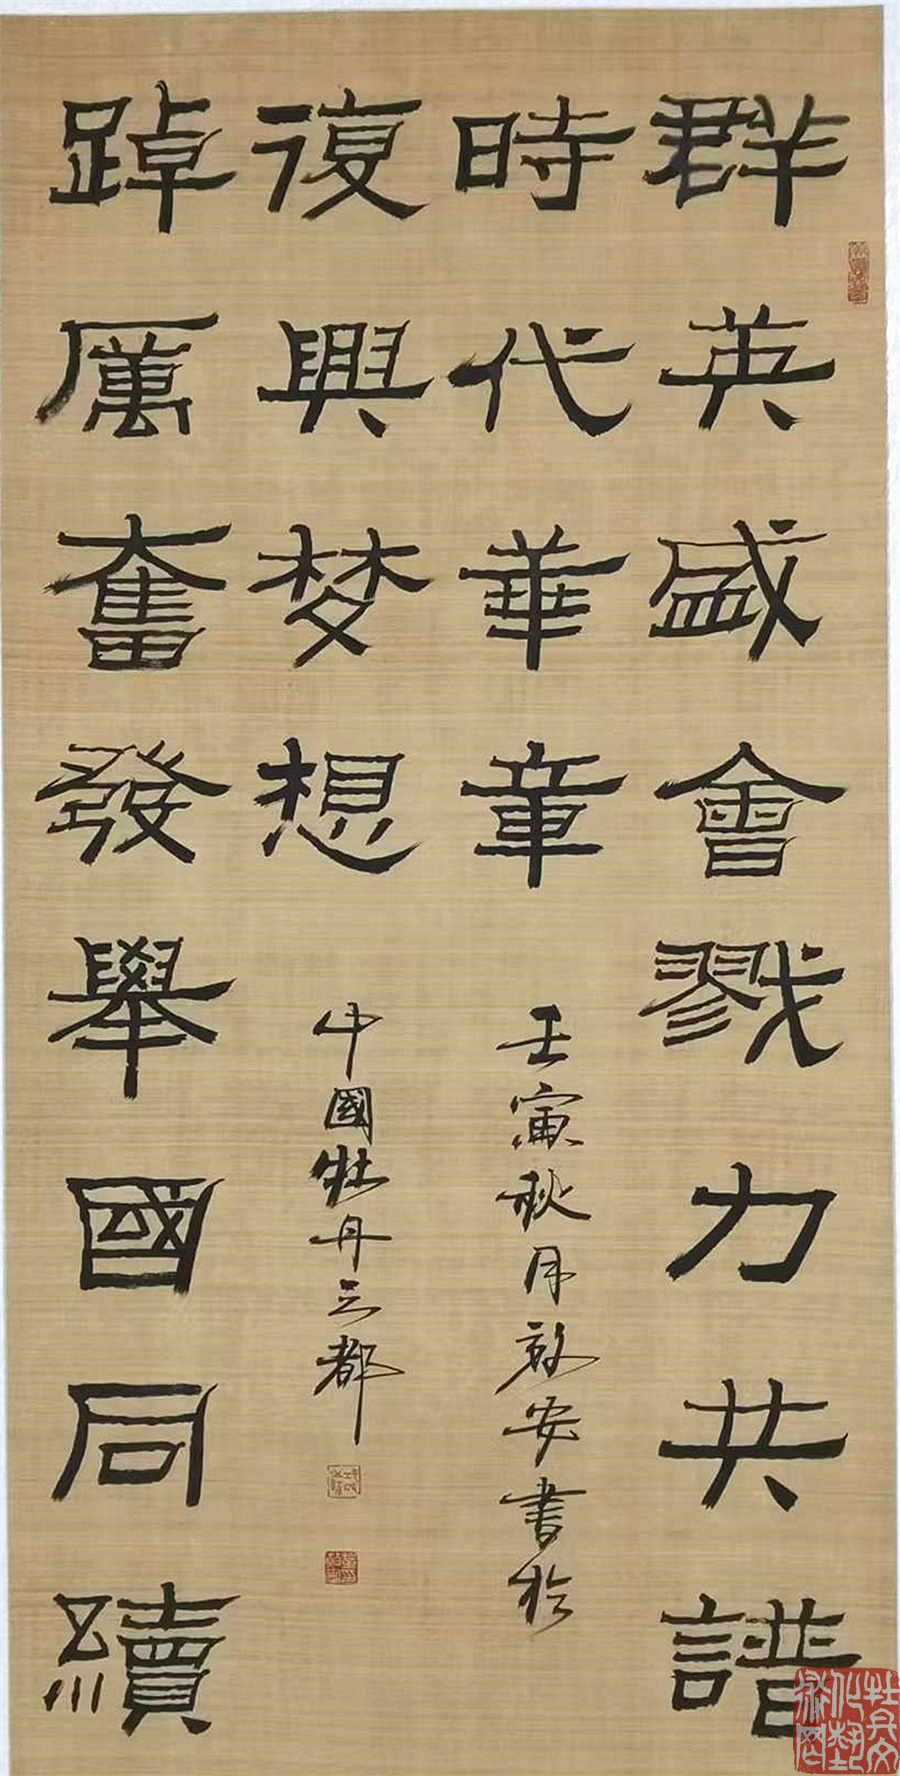 群英盛會戮力共譜
時代華章
踔厲奮發舉國同續
復興梦想
壬寅秋月安書於
中國牡丹之都
牡丹文
化藝
術网